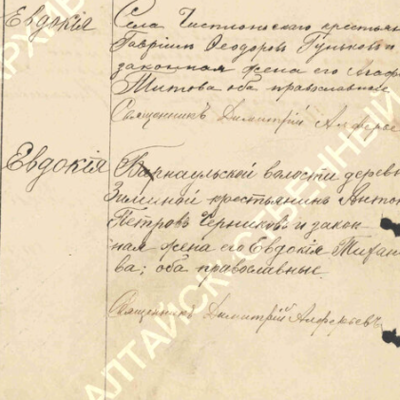 Евдокія
Села Чистюньскаго крестьян
Гавріилъ Ѳеодоровъ Гуньковъ и
законная жена его Агаф
Титова оба православные
Священникъ Димитрій Алфее
Евдокія
Барнаульской волости деревн
Зиминой крестьянинъ Антон
Петровъ Черниковъ и закон
ная жена его Евдокія Михаи
ва; оба православные
Священникъ Димитрій Алфеевъ
АЛТАЙСК
АРХИВ
СТВЕННЫЙ